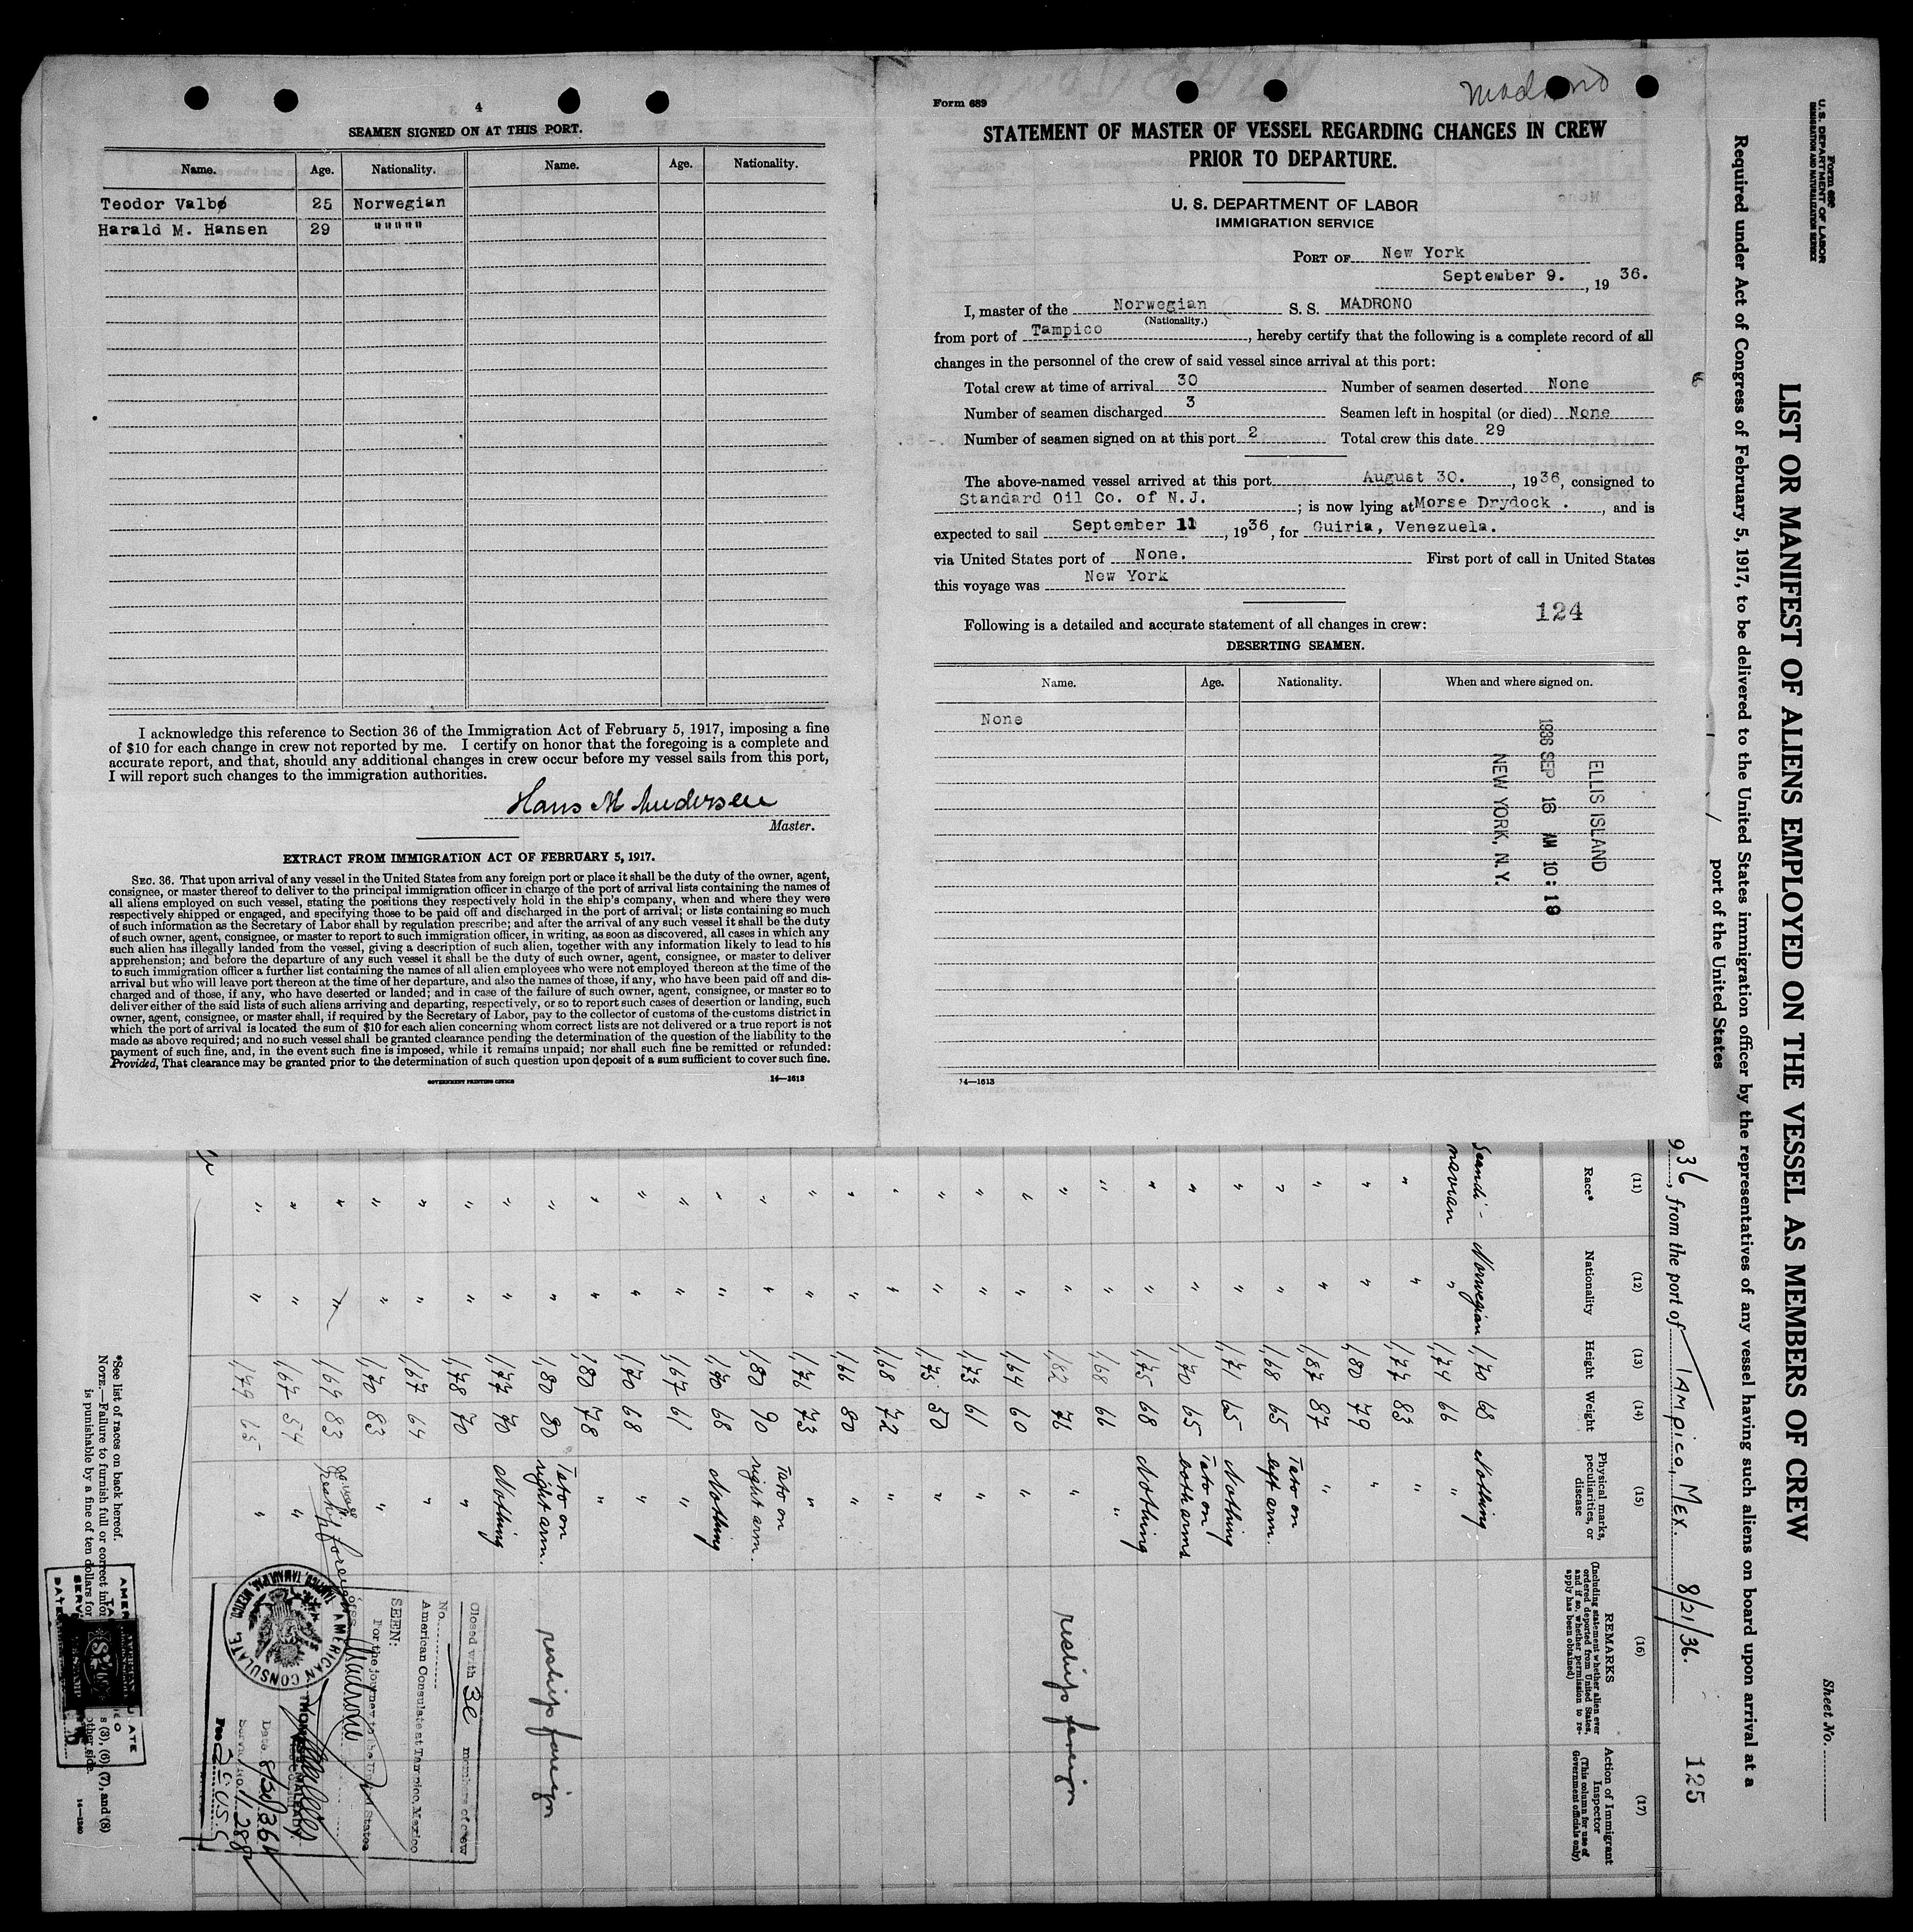 4
SEAMEN SIGNED ON AT THIS PORT.
Name. Age. Nationality. Name. Age. Nationality.
Teodor Valbø 25 Norwegian
Harald M. Hansen 29 " " " " "
I acknowledge this reference to Section 36 of the Immigration Act of February 5, 1917, imposing a fine
of $10 for each change in crew not reported by me. I certify on honor that the foregoing is a complete and
accurate report, and that, should any additional changes in crew occur before my vessel sails from this port,
I will report such changes to the immigration authorities.
Hans M Andersen
Master.
EXTRACT FROM IMMIGRATION ACT OF FEBRUARY 5, 1917.
SEC. 36. That upon arrival of any vessel in the United States from any foreign port or place it shall be the duty of the owner, agent,
consignee, or master thereof to deliver to the principal immigration officer in charge of the port of arrival lists containing the names of
all aliens employed on such vessel, stating the positions they respectively hold in the ship's company, when and where they were
respectively shipped or engaged, and specifying those to be paid off and discharged in the port of arrival; or lists containing so much
of such information as the Secretary of Labor shall by regulation prescribe; and after the arrival of any such vessel it shall be the duty
of such owner, agent, consignee, or master to report to such immigration officer, in writing, as soon as discovered, all cases in which any
such alien has illegally landed from the vessel, giving a description of such alien, together with any information likely to lead to his
apprehension; and before the departure of any such vessel it shall be the duty of such owner, agent, consignee, or master to deliver
to such immigration officer a further list containing the names of all alien employees who were not employed thereon at the time of the
arrival but who will leave port thereon at the time of her departure, and also the names of those, if any, who have been paid off and dis-
charged and of those, if any, who have deserted or landed; and in case of the failure of such owner, agent, consignee, or master so to
deliver either of the said lists of such aliens arriving and departing, respectively, or so to report such cases of desertion or landing, such
owner, agent, consignee, or master shall, if required by the Secretary of Labor, pay to the collector of customs of the customs district in
which the port of arrival is located the sum of $10 for each alien concerning whom correct lists are not delivered or a true report is not
made as above required; and no such vessel shall be granted clearance pending the determination of the question of the liability to the
payment of such fine, and, in the event such fine is imposed, while it remains unpaid; nor shall such fine be remitted or refunded:
Provided, That clearance may be granted prior to the determination of such question upon deposit of a sum sufficient to cover such fine.
GOVERNMENT PRINTING OFFICE 14—1613
Madrono
Form 689
STATEMENT OF MASTER OF VESSEL REGARDING CHANGES IN CREW
PRIOR TO DEPARTURE.
U. S. DEPARTMENT OF LABOR
IMMIGRATION SERVICE
PORT OF New York
September 9. , 19 36.
I, master of the Norwegian S. S. MADRONO
(Nationality.)
from port of Tampico , hereby certify that the following is a complete record of all
changes in the personnel of the crew of said vessel since arrival at this port:
Total crew at time of arrival 30 Number of seamen deserted None
Number of seamen discharged 3 Seamen left in hospital (or died) None
Number of seamen signed on at this port 2 Total crew this date 29
The above-named vessel arrived at this port August 30. , 1936, consigned to
Standard Oil Co. of N.J. ; is now lying at Morse Drydock . , and is
expected to sail September 11 , 1936, for Guiria, Venezuela.
via United States port of None. First port of call in United States
this voyage was New York
124
Following is a detailed and accurate statement of all changes in crew:
DESERTING SEAMEN.
Name. Age. Nationality. When and where signed on.
None
ELLIS ISLAND
1936 SEP 16 AM 10:19
NEW YORK, N.Y.
14—1613
Form 689
U. S. DEPARTMENT OF LABOR
IMMIGRATION AND NATURALIZATION SERVICE
Sheet No.
LIST OR MANIFEST OF ALIENS EMPLOYED ON THE VESSEL AS MEMBERS OF CREW
Required under Act of Congress of February 5, 1917, to be delivered to the United States immigration officer by the representatives of any vessel having such aliens on board upon arrival at a
port of the United States
125
936, from the port of TAMPICO, MEX. 8/21/36.
(11) (12) (13) (14) (15) (16) (17)
Race* Nationality Height Weight Physical marks, peculiarities, or disease REMARKS (Including statement whether alien ever ordered deported from United States, and if so, whether permission to re-apply has been obtained) Action of Immigrant Inspector (This column for use of Government officials only)
Scandi- Norwegian 1,70 68 Nothing
navian " 1,74 66 "
" " 1,77 83 "
" " 1,80 79 "
" " 1,87 87 "
" " 1,68 65 Tato on left arm.
" " 1,71 65 Nothing
" " 1,70 65 Tato on both arms
" " 1,75 68 Nothing
" " 1,68 66 "
" " 1,82 76 " reships foreign
" " 1,64 60 "
" " 1,73 61 "
" " 1,75 50 "
" " 1,68 72 "
" " 1,66 80 "
" " 1,71 73 "
" " 1,80 90 Tato on right arm.
" " 1,70 68 Nothing
" " 1,67 61 "
" " 1,70 68 "
" " 1,80 78 "
" " 1,80 80 Tato on right arm. reships foreign
" " 1,77 70 Nothing
" " 1,78 70 "
" " 1,67 64 "
" " 1,70 83 "
" " 1,69 83 reship foreign
" " 1,67 54 "
" " 1,79 65 "
Closed with 30 members of crew
No.
American Consulate at Tampico, Mexico
SEEN:
For the journey to the United States
Madrono
AMERICAN CONSULATE
TAMPICO, TAMAULIPAS, MEXICO
Date 8/20/36
Service No. 1288
Fee
*See list of races on back hereof.
NOTE.—Failure to furnish full or correct info s (3), (6), (7), and (8)
is punishable by a fine of ten dollars for other side.
14—1240